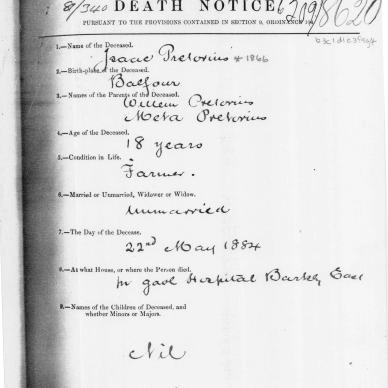 8/340 DEATH NOTICE
PURSUANT TO THE PROVISIONS CONTAINED IN SECTION 9, ORDINANCE
1.—Name of the Deceased.
Isaac Pretorius * 1866
2.—Birth-place of the Deceased.
Balfour
3.—Names of the Parents of the Deceased.
Willem Pretorius
Meta Pretorius
4.—Age of the Deceased.
18 years
5.—Condition in Life.
Farmer.
6.—Married or Unmarried, Widower or Widow.
Unmarried
7.—The Day of the Decease.
22nd May 1884
8.—At what House, or where the Person died.
In gaol Hospital Barkly East
9.—Names of the Children of Deceased, and
whether Minors or Majors.
Nil